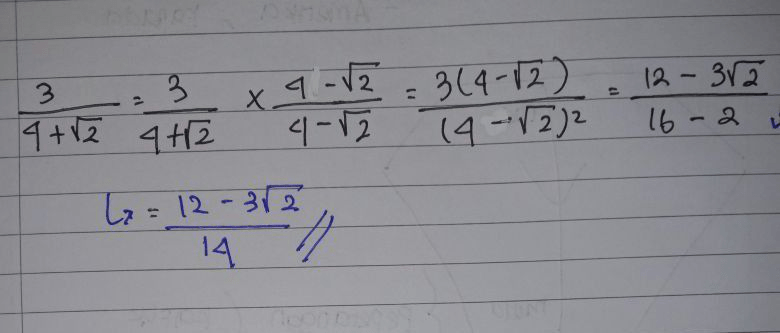 3/(4+√2) = 3/(4+√2) × (4-√2)/(4-√2) = 3(4-√2)/(4-√2)² = (12-3√2)/(16-2)
↳ = (12-3√2)/14 //